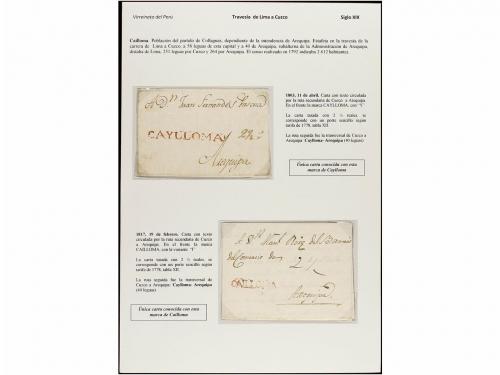 Virreinato del Perú
Travesía de Lima a Cusco
Siglo XIX
Caylloma. Población del partido de Collaguas, dependiente de la intendencia de Arequipa. Estafeta en la travesía de la
carrera de Lima a Cusco; a 58 leguas de esta capital y a 40 de Arequipa, subalterna de la Administración de Arequipa,
distaba de Lima, 231 leguas por Cusco y 264 por Arequipa. El censo realizado en 1792 indicaba 2.612 habitantes.
A Dn Juan Fernandez
CAYLLOMA 2½
Arequipa
1803, 11 de abril. Carta con texto circulada
por la ruta secundaria de Cusco a Arequipa.
En el frente la marca CAYLLOMA, con "Y"
La carta tasada con 2 ½ reales, se
corresponde con un porte sencillo según
tarifa de 1778, tabla XII.
La ruta seguida fue la transversal de Cusco a
Arequipa: Caylloma- Arequipa (40 leguas)
Única carta conocida con esta
marca de Caylloma
1817, 19 de febrero. Carta con texto
circulada por la ruta secundaria de Cusco
a Arequipa. En el frente la marca
CAILLOMA, con la variante "I"
La carta tasada con 2 ½ reales, se
corresponde con un porte sencillo según
tarifa de 1778, tabla XII.
La ruta seguida fue la transversal de
Cusco a Arequipa: Caylloma- Arequipa
(40 leguas)
Única carta conocida con esta
marca de Cailloma
del Comercio de
CAILLOMA
Arequipa